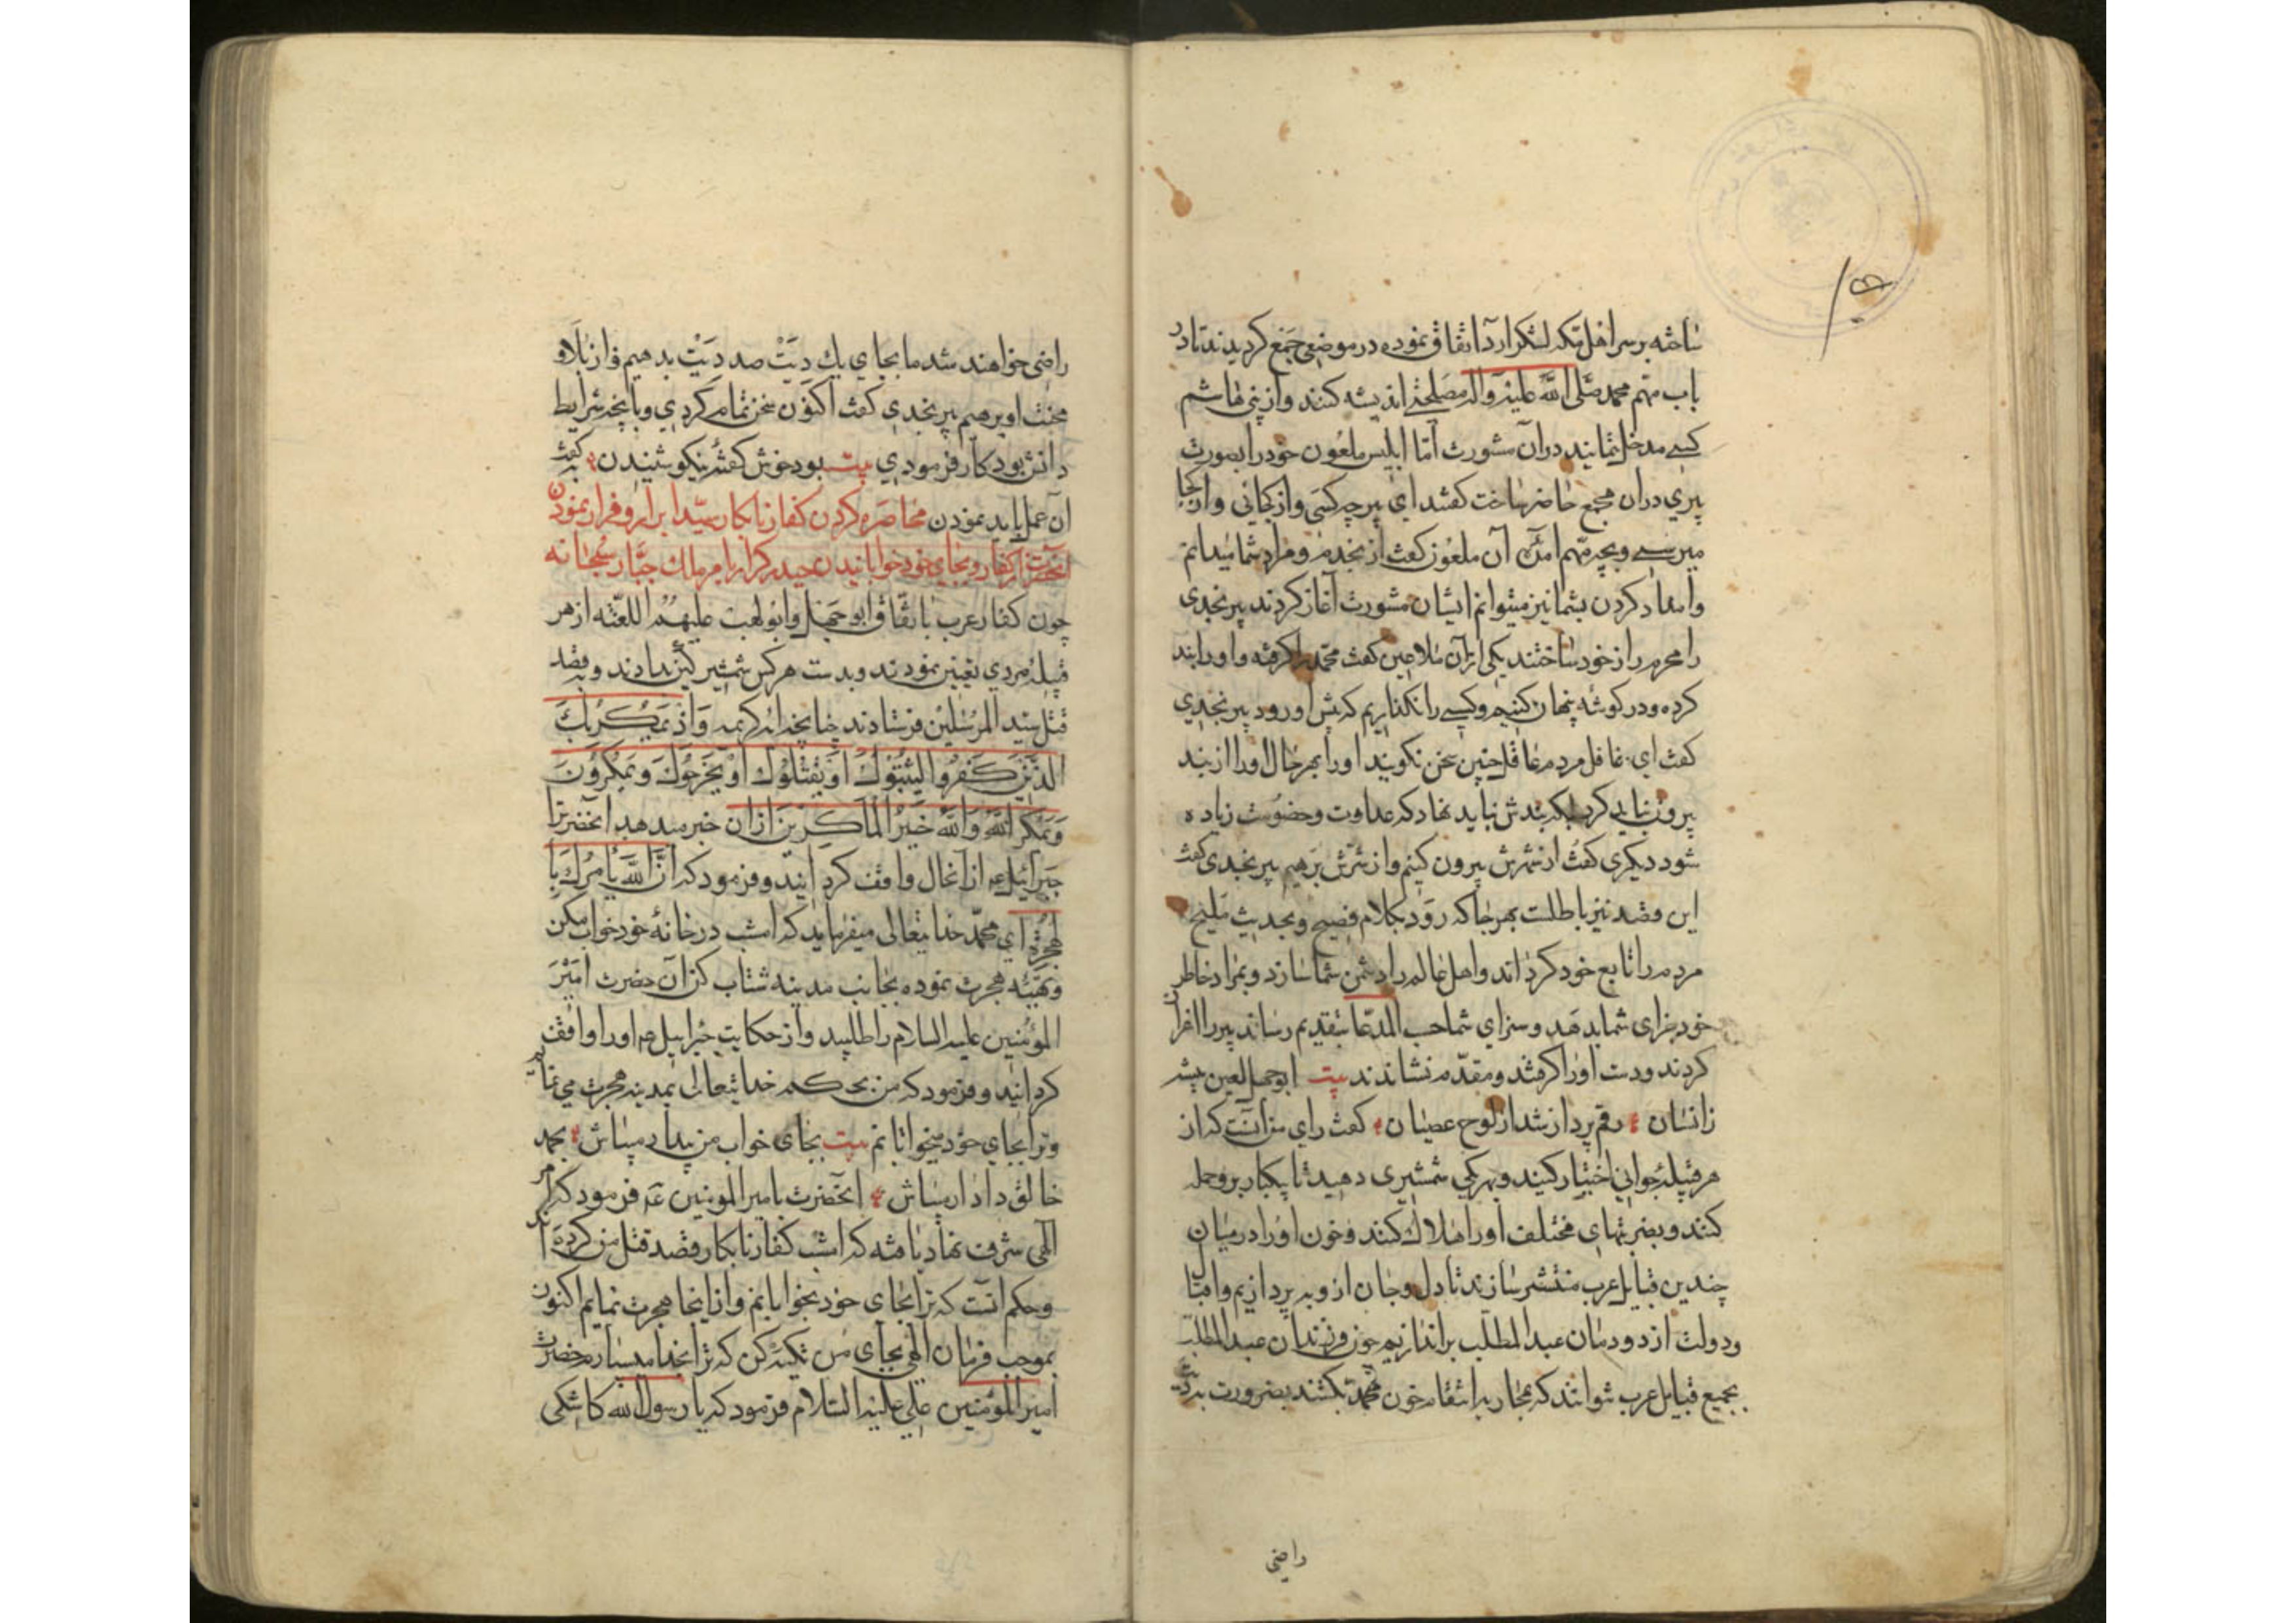 ساخته بر سر اهل مکه لشکر ارد اتفاق نموده در موضعی جمع کردیدند تا در
باب مهم محمد صلی الله علیه واله مصلحتی اندیشه کنند و از بنی هاشم
کسی مدخل نمایند دران مشورت اما ابلیس ملعون خود را بصورت
پیری دران مجمع حاضر ساخت کفتند ای پیر چه کسی و از کجائی و از کجا
میرسی و بچه مهم امده آن ملعون کفت از نجدم و مراد شما میدانم
و امداد کردن بشما نیز میتوانم ایشان مشورت آغاز کردند پیر نجدی
را محرم راز خود ساختند یکی از آن ملاعین کفت محمد را کرفته و او را بند
کرده و در کوشه پنهان کنیم و کسی را نکذاریم که پیش او رود پیر نجدی
کفت ای غافل مردم عاقل چنین سخن نکویند او را بهر حال او را از بند
بیرون نیاید کرد بلکه بندش نباید نهاد که عداوت و خصومت زیاده
شود دیکری کفت از شهرش بیرون کنیم و از شرش برهیم پیر نجدی کفت
این قصد نیز باطلست بهر جا که رود بکلام فصیح و بحدیث ملیح
مردم را تابع خود کرداند و اهل عالم را دشمن شما سازد و بمراد خاطر
خود سزای شما بدهد و سزای شما حسب المدعا بتقدیم رساند پیر را اقرار
کردند و دست او را کرفتند و مقدم نشاندند بیت ابوجهل لعین پیشه
زانسان رقم پرداز شد از لوح عصیان کفت رای من آنست که از
هر قبیله جوانی اختیار کنید و بهر یکی شمشیری دهید تا بیکبار برو حمله
کنند و بضربتهای مختلف او را هلاک کنند و خون او را در میان
چندین قبایل عرب منتشر سازند تا دل و جان ازو بپردازیم و اقبال
و دولت از دودمان عبد المطلب براندازیم چون فرزندان عبد المطلب
بجمیع قبایل عرب نتوانند که محاربه انتقام خون محمد بکشند بضرورت بدیت
راضی
راضی خواهند شد ما بجای یک دیت صد دیت بدهیم و از بلا و
محنت او برهیم پیر نجدی کفت اکنون سخن تمام کردی و بانچه شرایط
دانش بود کار فرمودی بیت بود خوش کفته نیکو شنیدن که کفت
آن عمل باید نمودن محاصره کردن کفار نابکار سید ابرار و فرار نمودن
آنحضرت از کفار و بجای خود خوابانیدن حیدر کرار بامر ملک جبار سبحانه
چون کفار عرب باتفاق ابو جهل و ابو لهب علیهم اللعنه از هر
قبیله مردی تعیین نمودند و بدست هر کس شمشیر کین دادند و بقصد
قتل سید المرسلین فرستادند چنانچه ایه کریمه وَاِذْ یَمْکُرُ بِکَ
الَّذِینَ کَفَرُوا لِیُثْبِتُوکَ اَوْ یَقْتُلُوکَ اَوْ یُخْرِجُوکَ وَ یَمْکُرُونَ
وَ یَمْکُرُ اللهُ وَاللهُ خَیْرُ الْمَاکِرِینَ ازان خبر میدهد آنحضرت را
جبرائیل عم از آنحال واقف کردانید و فرمود که اِنَّ اللهَ یَأمُرُکَ بِا
لهِجْرَةِ ای محمد خدایتعالی میفرماید که امشب در خانهٔ خود خواب مکن
و تهیه هجرت نموده بجانب مدینه شتاب کن آن حضرت امیر
المؤمنین علیه السلام را طلبید و از حکایت جبرائیل عم او را واقف
کردانید و فرمود که من بحکم خدایتعالی بمدینه هجرت می نمایم
و ترا بجای خود میخوابانم بیت بجای خواب من بیدار میباش بحمد
خالق دادار میباش آنحضرت بامیر المومنین عم فرمود که امر
آلهی شرف نفاد یافته که امشب کفار نابکار قصد قتل من کرده اند
و حکم انست که ترا بجای خود بخوابانم و از اینجا هجرت نمایم اکنون
بموجب فرمان الهی بجای من تکیه کن که ترا بخدا میسپارم حضرت
امیر المؤمنین علی علیه السلام فرمود که یا رسول الله کاشکی